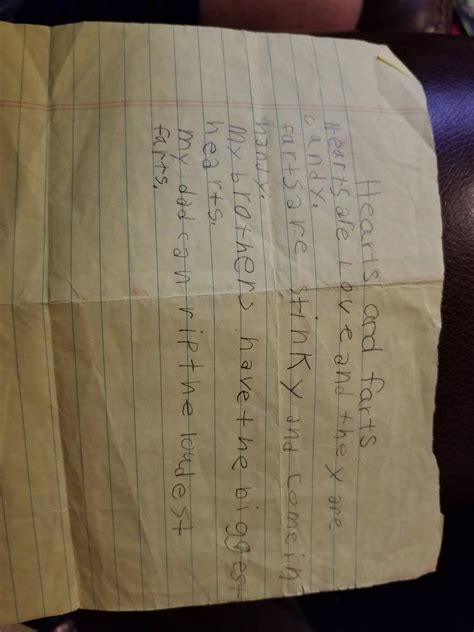 Hearts and farts
Hearts are Love and they are
candy.
farts are stinky and come in
handy.
My brothers have the biggest
hearts.
my dad can rip the loudest
farts.